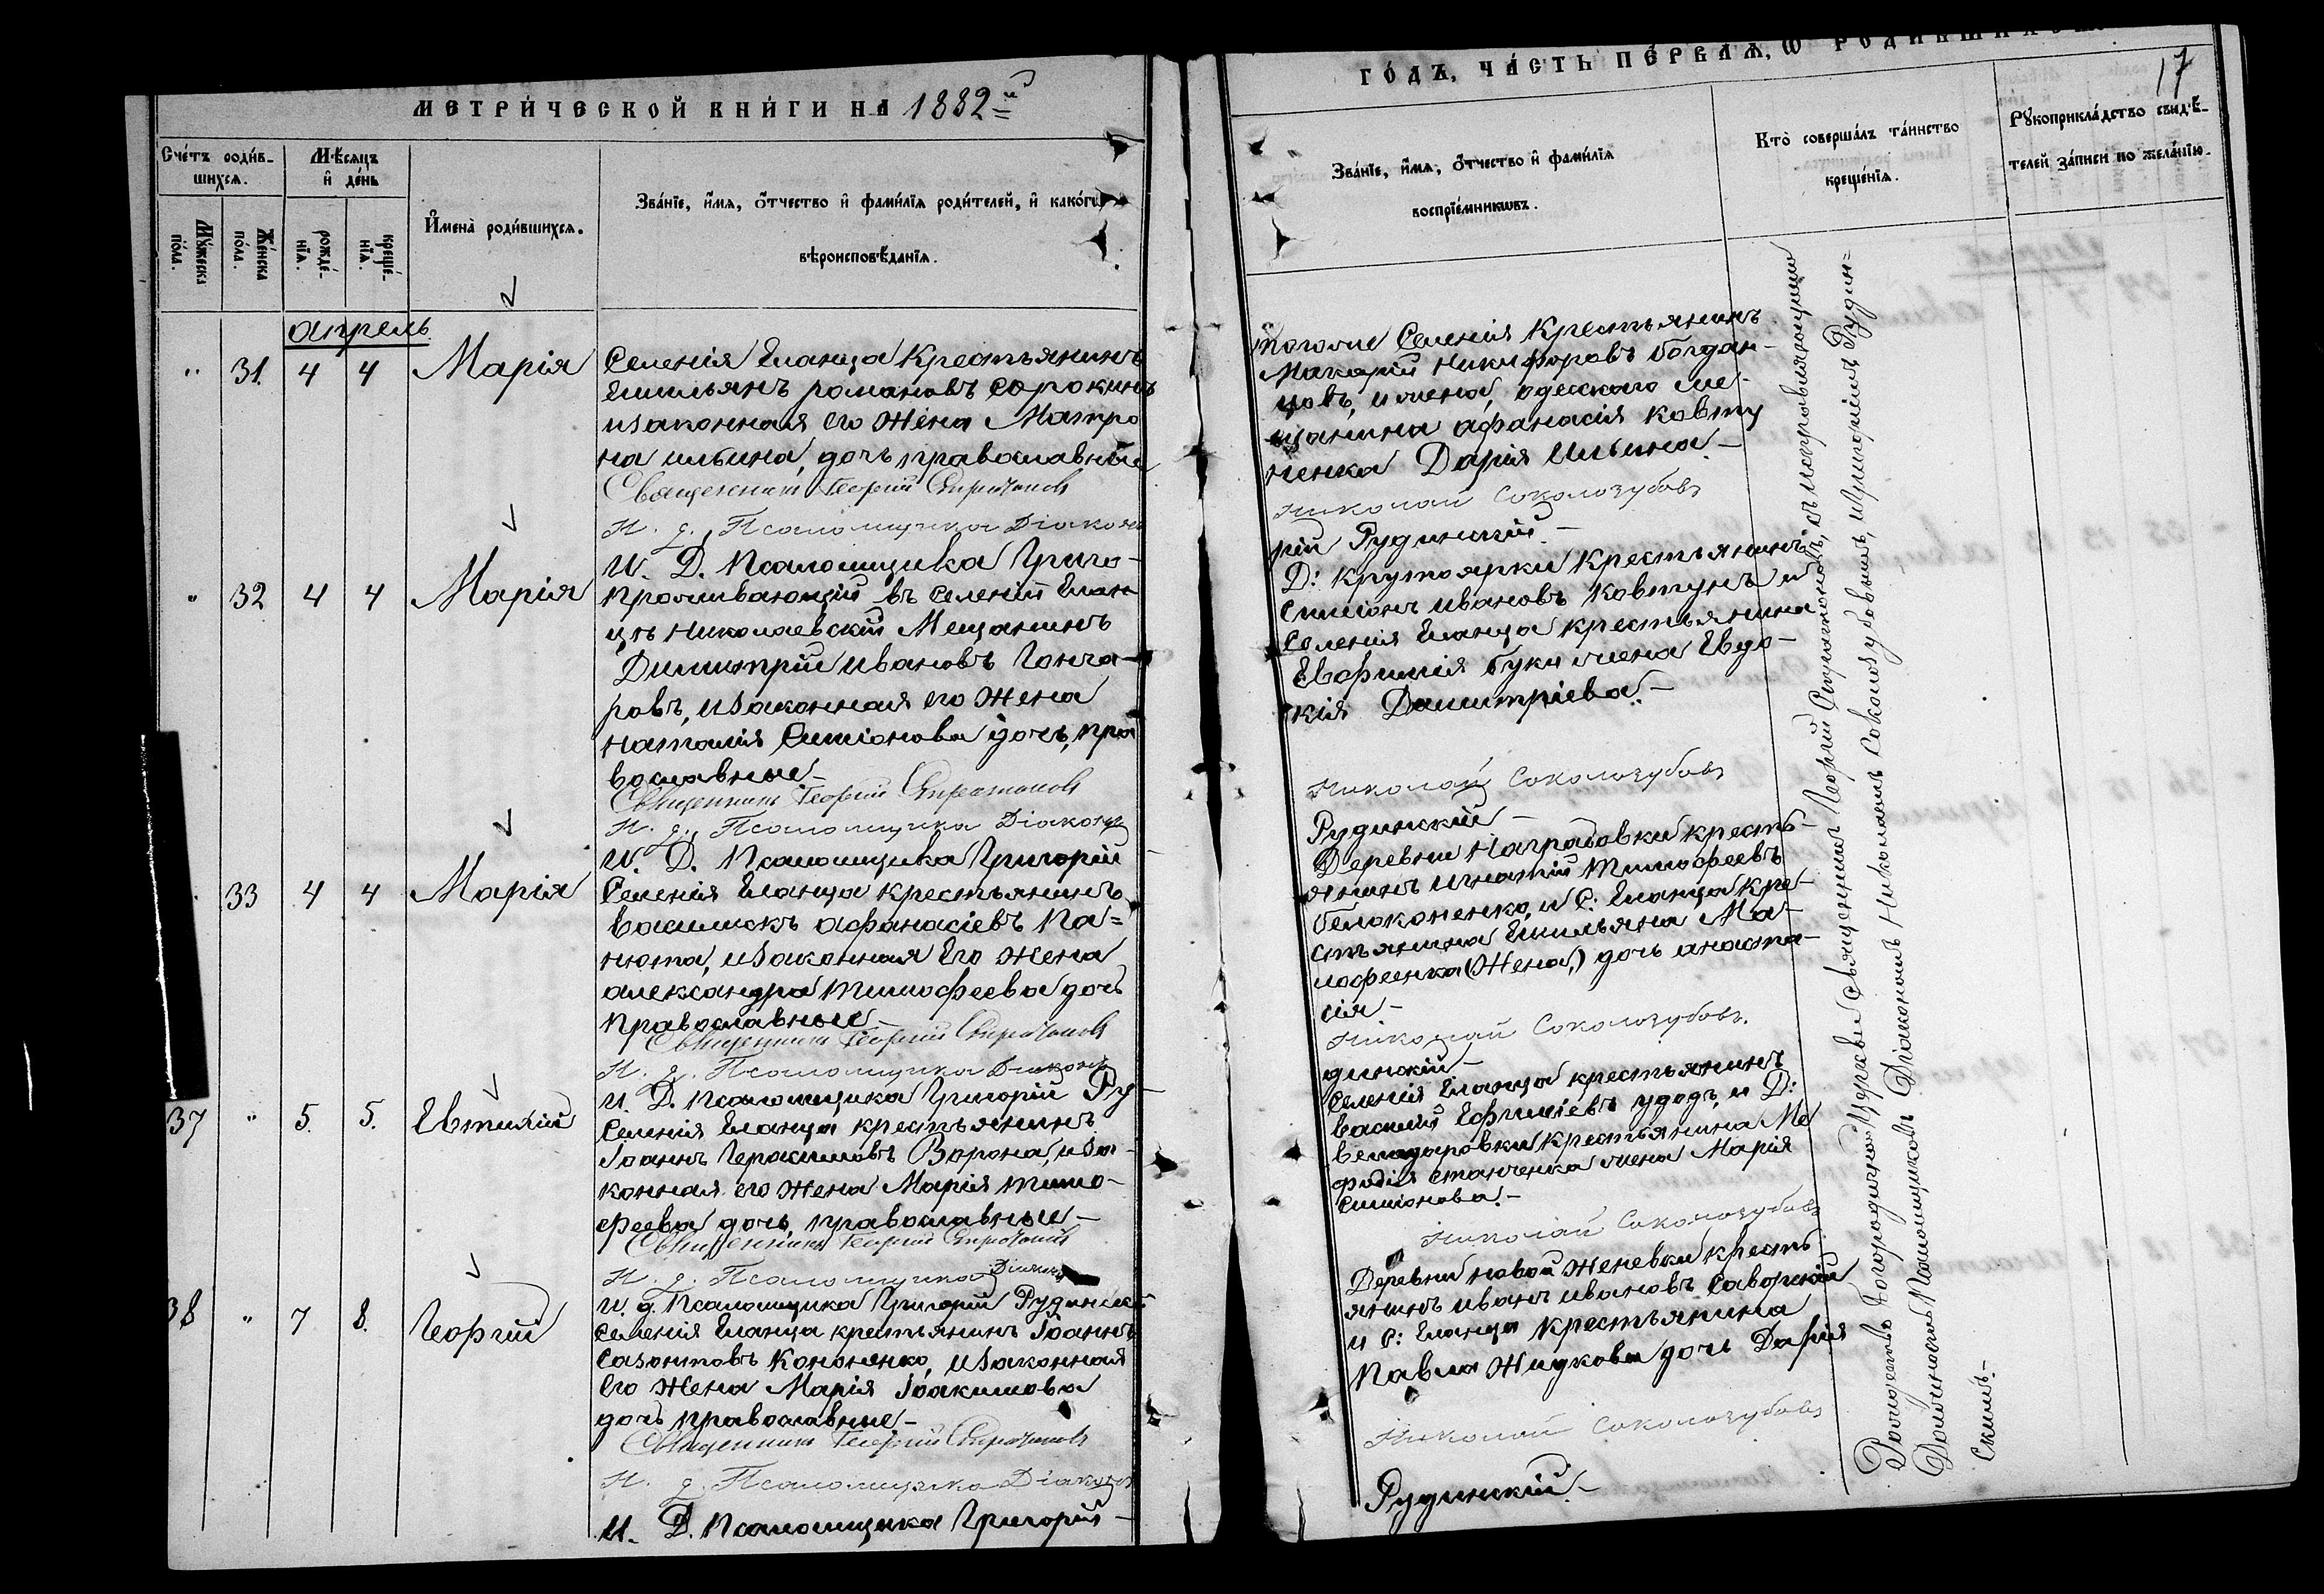 МЕТРИ́ЧЕСКОЙ КНИ́ГИ НА 1882й
Сче́тъ роди́в-
шихся.
Мѣ́сяцъ
и҆ де́нь
Му́жеска
по́ла.
Же́нска
по́ла.
рожде́-
нїя.
креще́-
нїя.
И҆мена̀ роди́вшихся.
Зва́нїе, и҆́мя, о҆́тчество и҆ фами́лїя роди́телей, и҆ како́гѡ
вѣроисповѣ́данїя.
апрель
" 31. 4 4 Марія
Селенія Еланца Крестьянинъ
Емильянъ романовъ Сорокинъ
изаконная его Жена Матро
на ильина, дочь, православные
Священникъ Георгій
И. д. Псаломщика Діаконъ
И. Д. Псаломщика Григо-
" 32 4 4 Марія
Проживающій въ Селеніи Елан
цѣ Николаевскій Мещанинъ
Димитрій Ивановъ Гонча-
ровъ, изаконная его Жена
Наталія Симіонова дочь, пра
вославные-
Священникъ Георгій
И. д. Псаломщика Діаконъ
И. Д. Псаломщика Григорій
33 4 4 Марія
Селенія Еланца крестьянинъ
Василискъ афанасіевъ Па=
нюта, изаконная Его жена
александра Тимофеева дочь
Православные-
Священникъ Георгій
И. д. Псаломщика Діаконъ
И. Д. Псаломщика Григорій Ру
37 " 5. 5. Евтихій
Селенія Еланца крестьянинъ
Іоаннъ Герасимовъ Ворона, иза
конная его жена Марія тимо-
феева дочь, православные-
Священникъ Георгій
И. д. Псаломщика Діаконъ
И. д. Псаломщика Григорій Рудинскій
38 " 7 8. Георгій
Селенія Еланца крестьянинъ Іоаннъ
Сазонтовъ Кононенко, изаконная
Его Жена Марія Іоакимова
дочь православные-
Священникъ Георгій
И. д. Псаломщика Діаконъ
И. Д. Псаломщика Григорій-
ГО́ДЪ, ЧА́СТЬ ПЕ́РВАЯ, Ѡ РОДИ́ВШИХСЯ.
17
Зва́нїе, и҆́мя, о҆́тчество и҆ фами́лїя
воспрїе́мникѡвъ.
Кто̀ соверша́лъ та́инство
креще́нїя.
Рꙋкоприкла́дство свидѣ́-
телей за́писи по жела́нїю.
тогоже Селенія Крестьянинъ
Макарій Никифоровъ Богдан-
цовъ, ижена, одесскаго ме-
щанина афанасія Ковту
ненка Дарія Ильина-
Николай Соколозубовъ
рій Рудинскій-
Д: Крутоярки Крестьянинъ
Симіонъ Ивановъ Ковтунъ и
Селенія Еланца крестьянина
Евфимія Буки жена Евдо-
кія Димитріева-
Николай Соколозубовъ
Рудинскій-
Деревни Награбовки кресть-
янинъ Игнатій Тимофеевъ
Белоконенко, и С: Еланца кре-
стьянина Емильяна Ма-
лофеенка (Жена,) дочь анаста-
сія-
Николай Соколозубовъ.
динскій-
Селенія Еланца крестьянинъ
Василій Ефиміевъ удодъ, и Д:
Велидаровки крестьянина Ме
фодія Станченка жена Марія
Симіонова-
Николай Соколозубовъ
Деревни новой Женевки кресть
янинъ Иванъ Ивановъ Саворскій
и С: Еланца Крестьянина
Павла Жидкова дочь Дарія
Николай Соколозубовъ
Рудинскій-
Рождество Богородичной Церкви Священникъ Георгій съ исправляющими
Должность Псаломщиковъ Діакономъ Николаемъ Соколозубовымъ, иГригоріемъ Рудин=
скимъ-